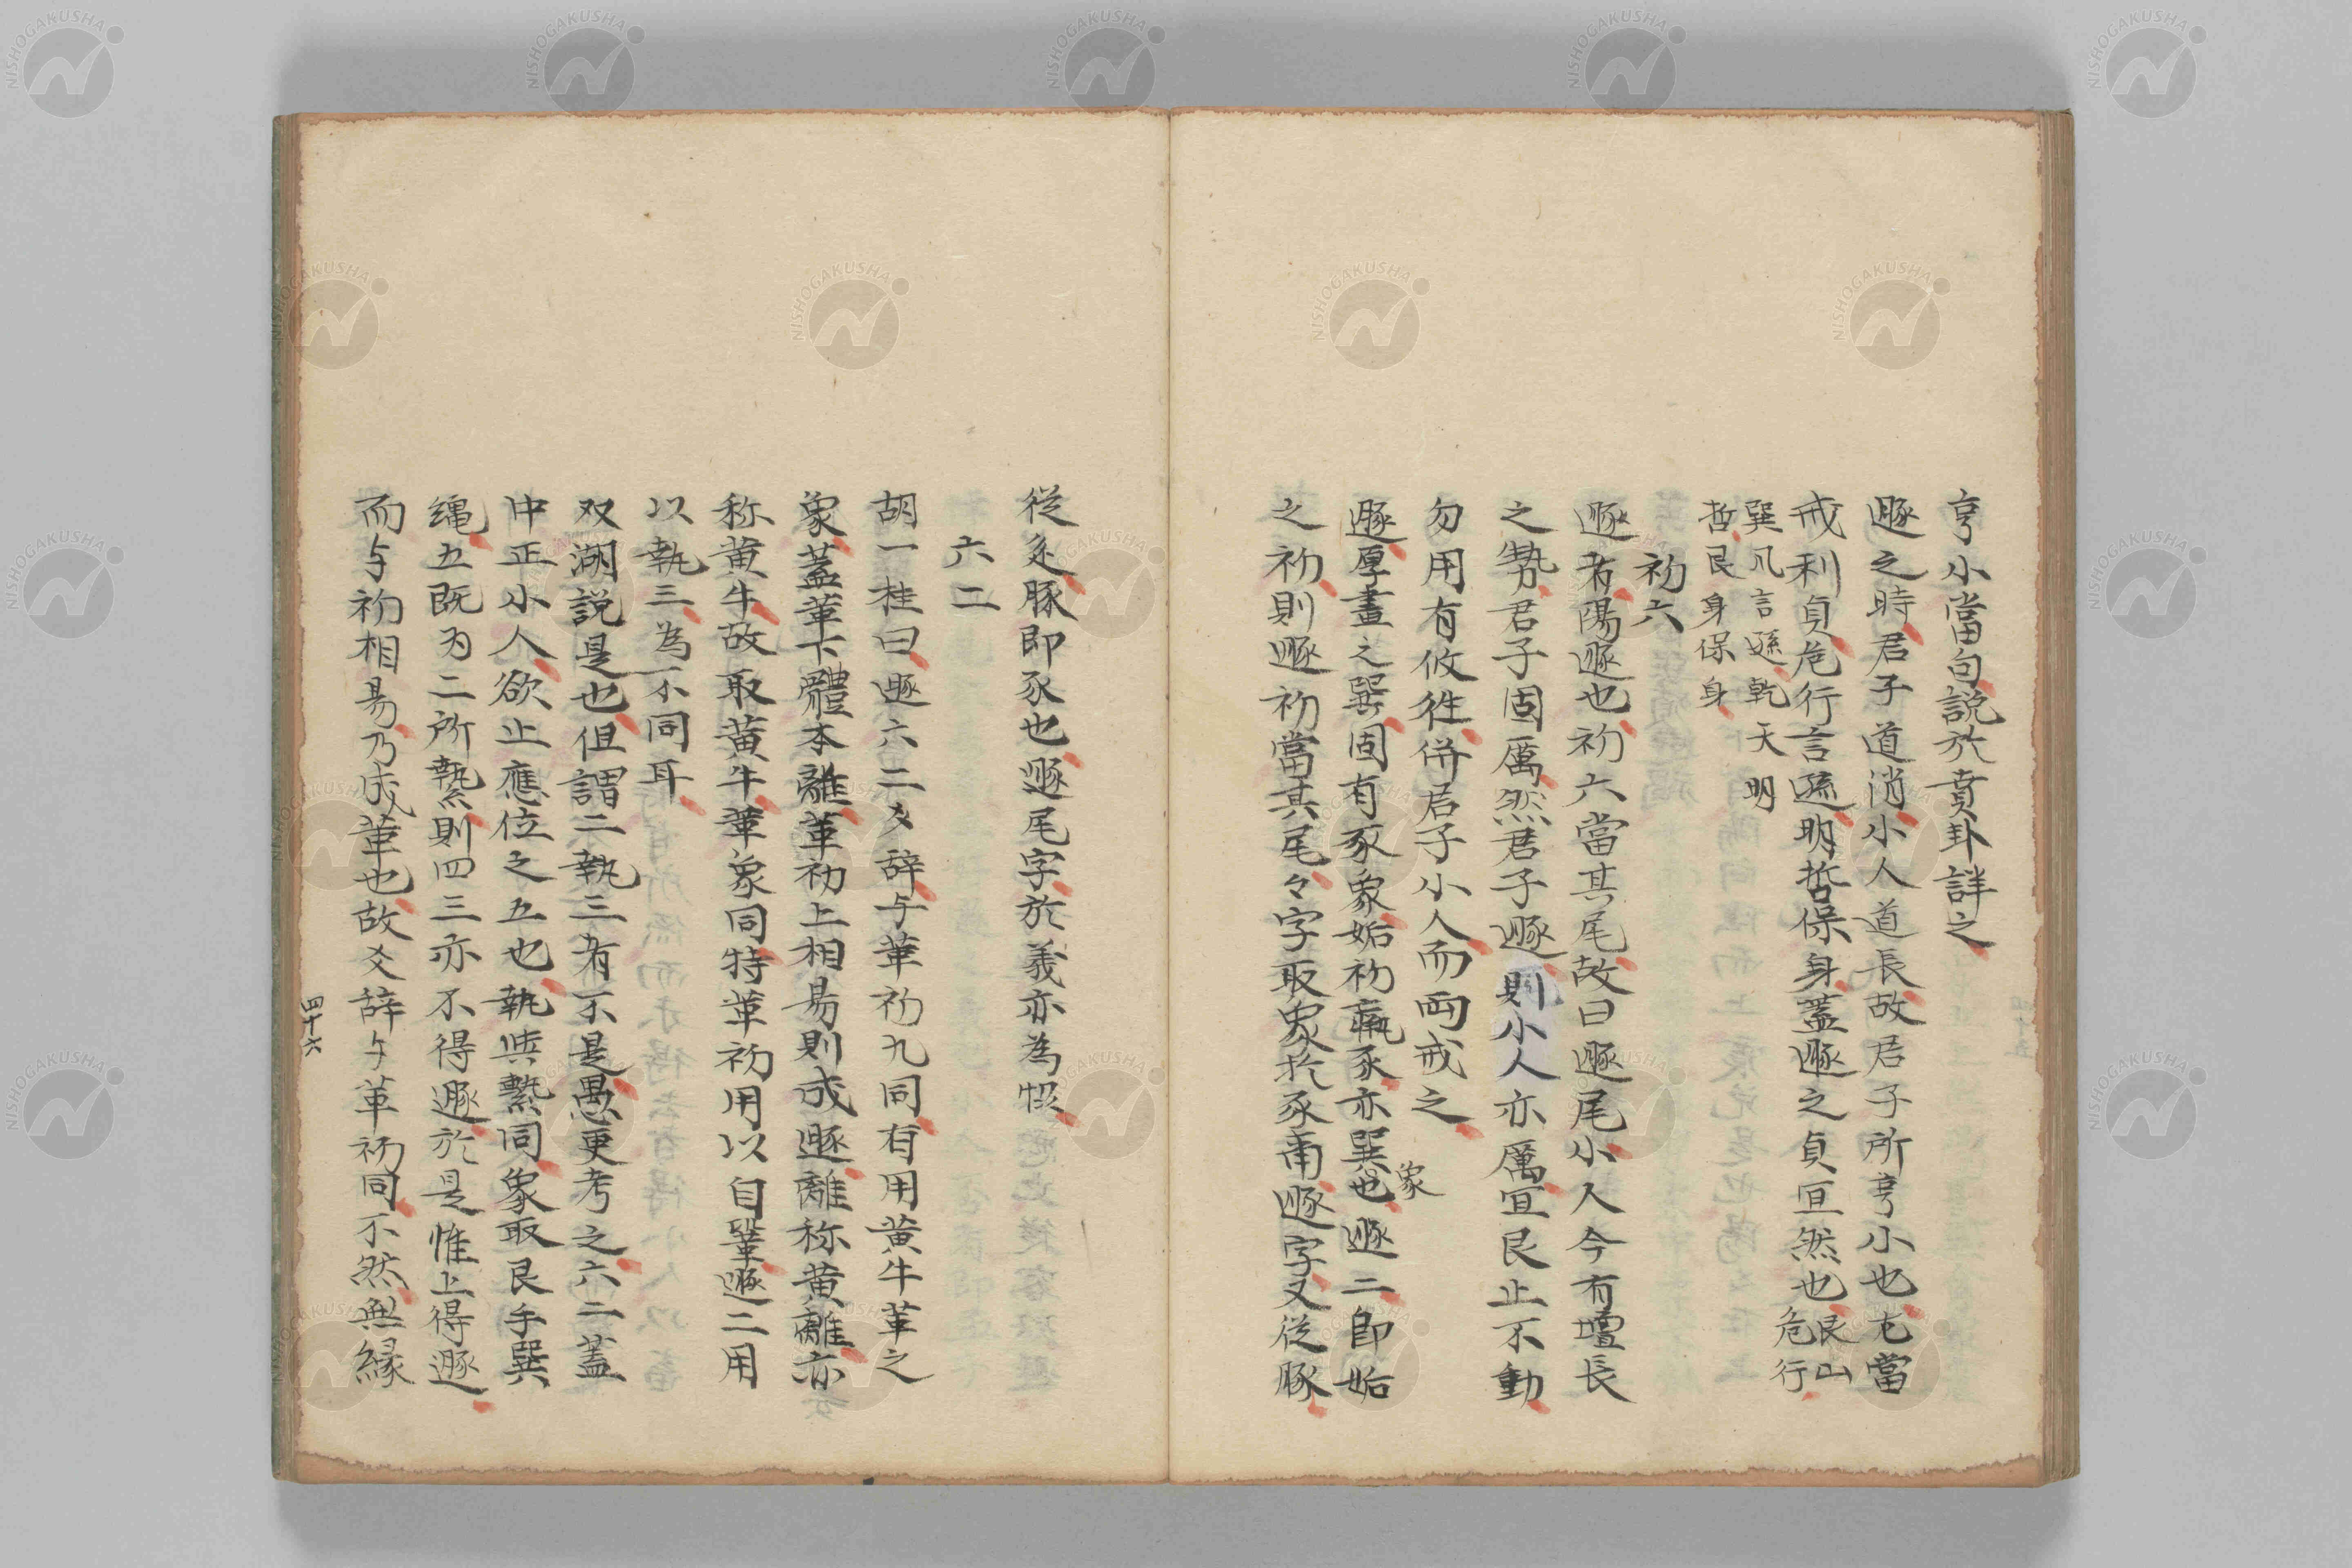 亨小當句説於賁卦詳之
遯之時君子道消小人道長故君子所亨小也七當
戒利貞危行言遜明哲保身蓋遯之貞宜然也艮山危行
巽凡言遜乾天明
哲艮身保身
初六
遯者陽遯也初六當其尾故曰遯尾小人今有壇長
之勢君子固厲然君子遯則小人亦厲宜艮止不動
勿用有攸徃併君子小人而両戒之
遯厚畫之巽固有豕象姤初羸豕亦巽也象遯二即姤
之初則遯初當其尾々字取象於豕甫遯字又従豚
従辵豚即豕也遯尾字於義亦為
六二
胡一桂曰遯六二爻辞与革初九同有用黄牛革之
象蓋革下體本離革初上相易則成遯離称黄離亦
称黄牛故取黄牛革象同特革初用以自鞏遯二用
以執三為不同耳
双湖説是也但謂二執三者不是愚更考之六二蓋
中正小人欲止應位之五也執与縶同象取艮手巽
縄五既为二所縶則四三亦不得遯於是惟上得遯
而与初相易乃成革也故爻辞与革初同不然無縁
四十六
NISHOGAKUSHA